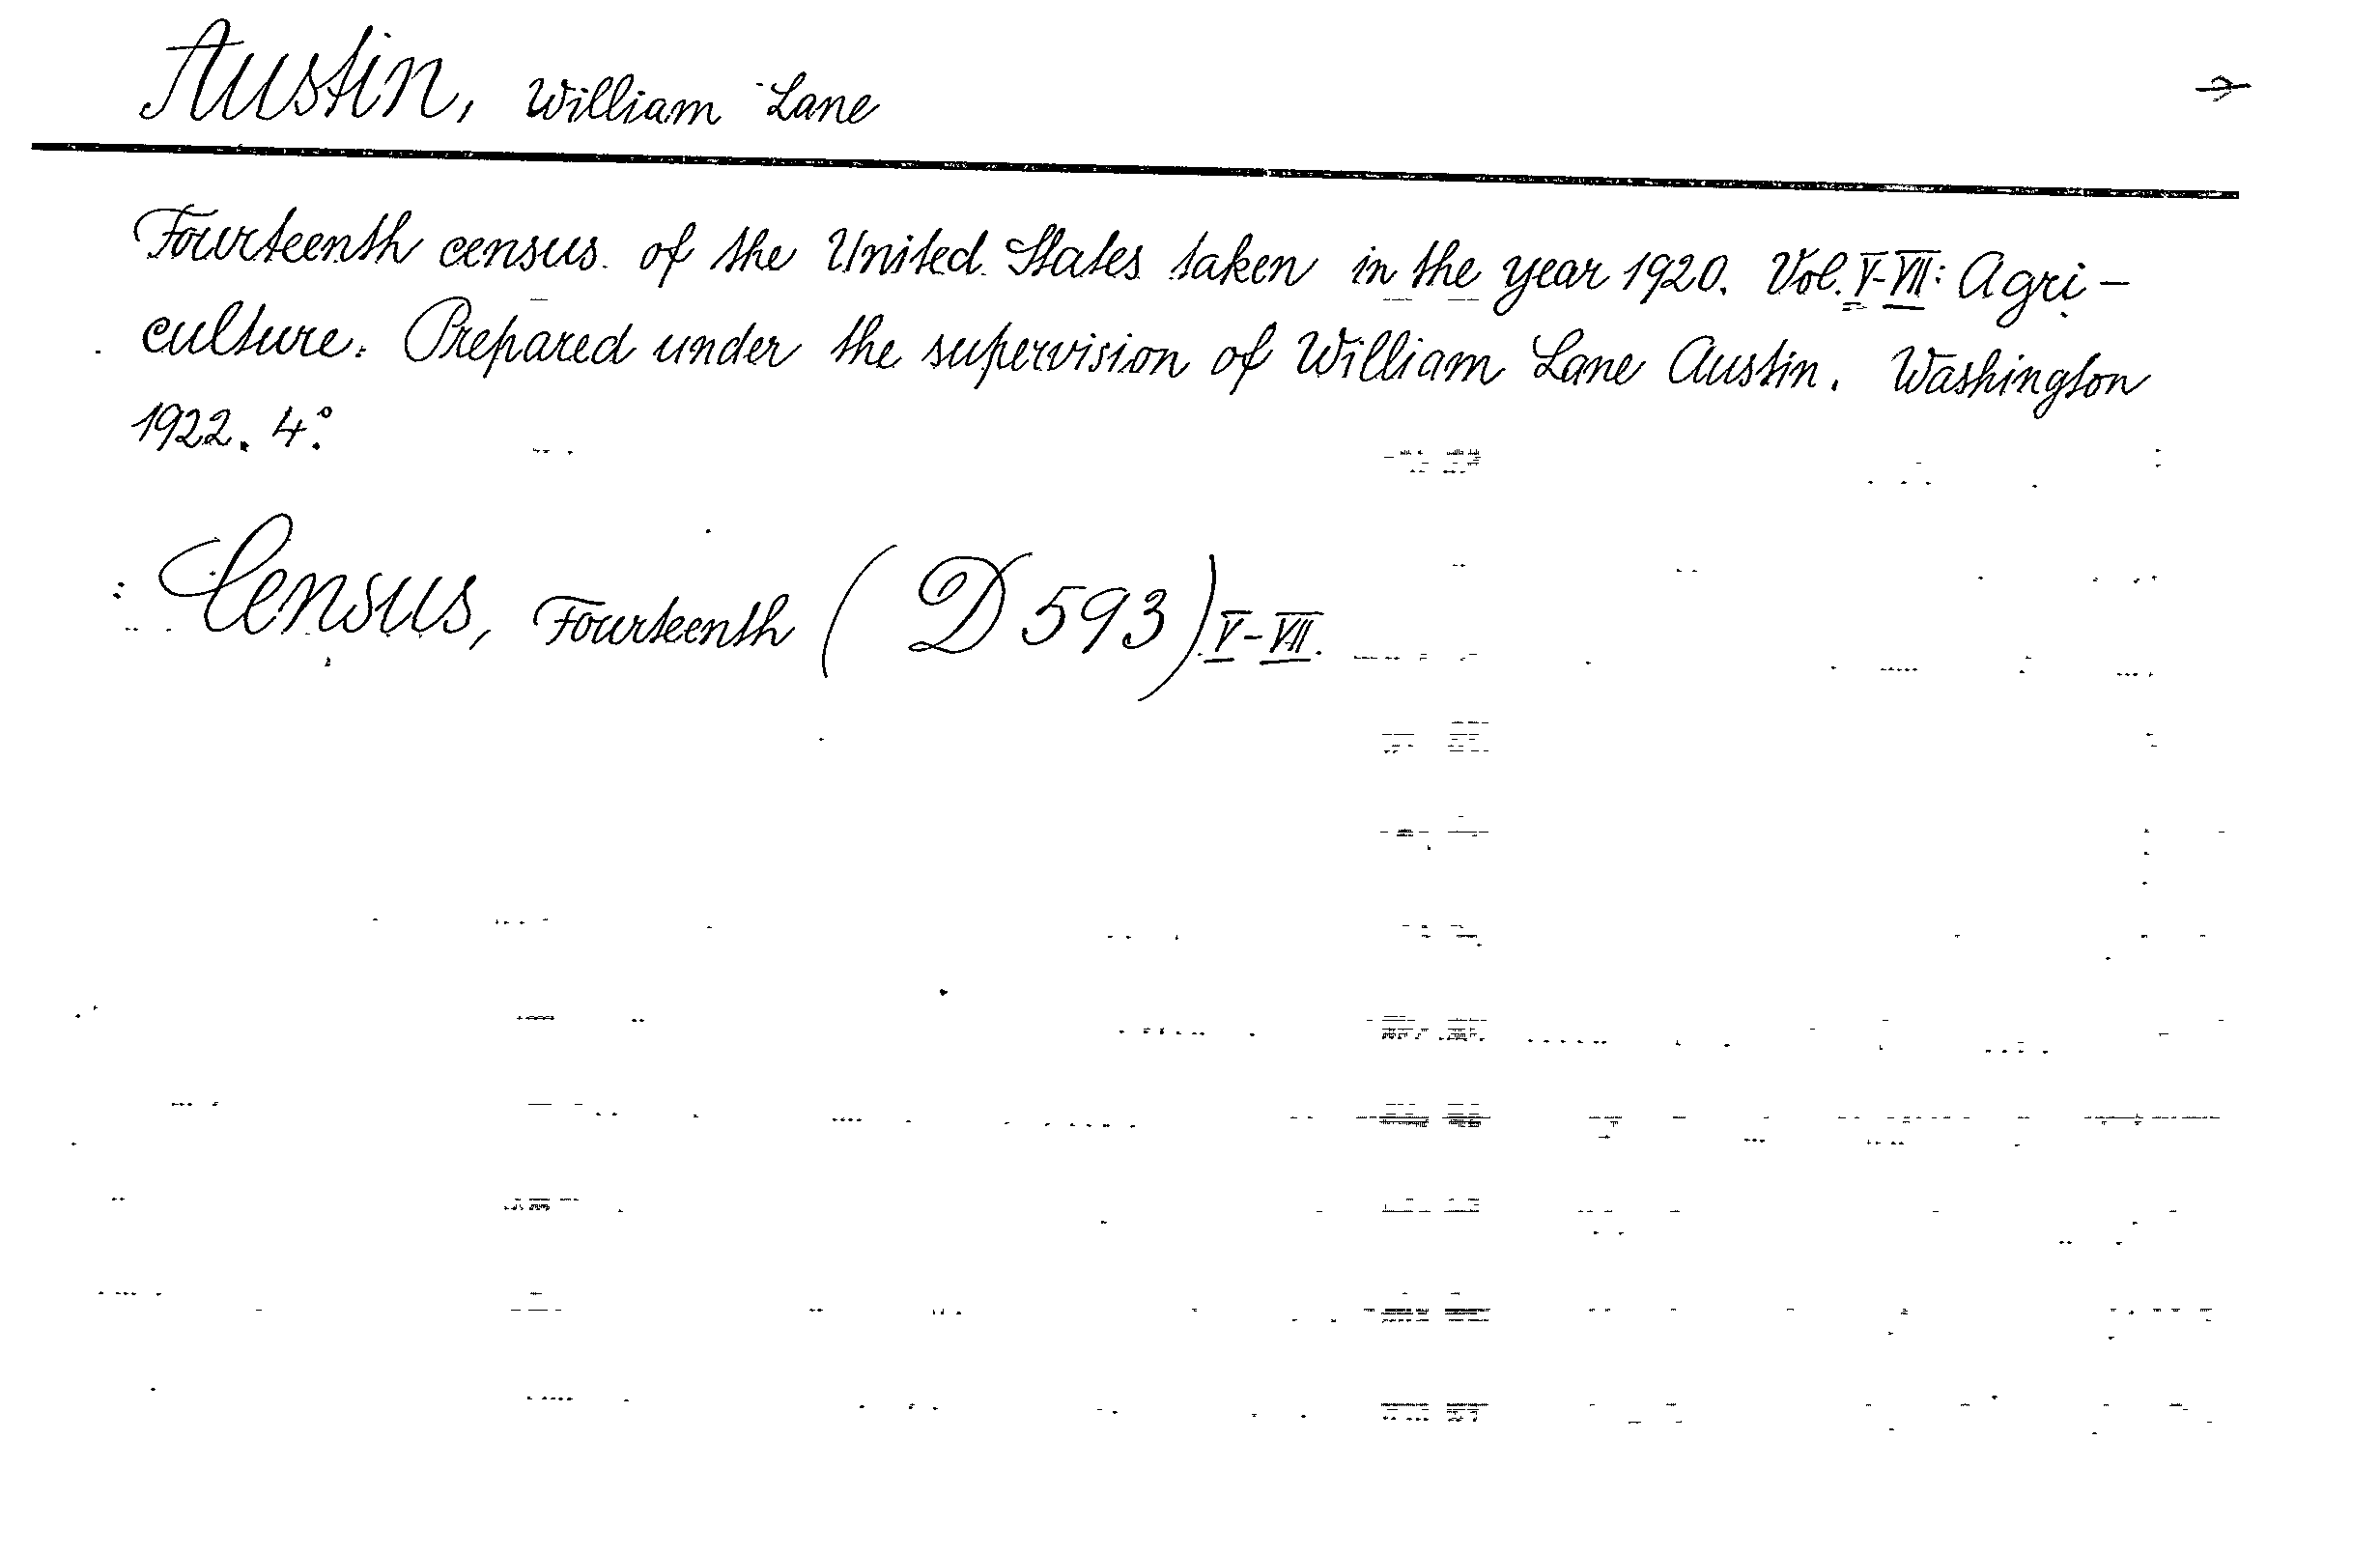 Austin, William Lane
Fourteenth census of the United States taken in the year 1920. Vol. V-VII: Agri-
culture. Prepared under the supervision of William Lane Austin. Washington
1922. 4°.
Census, Fourteenth (D 593) V-VII.